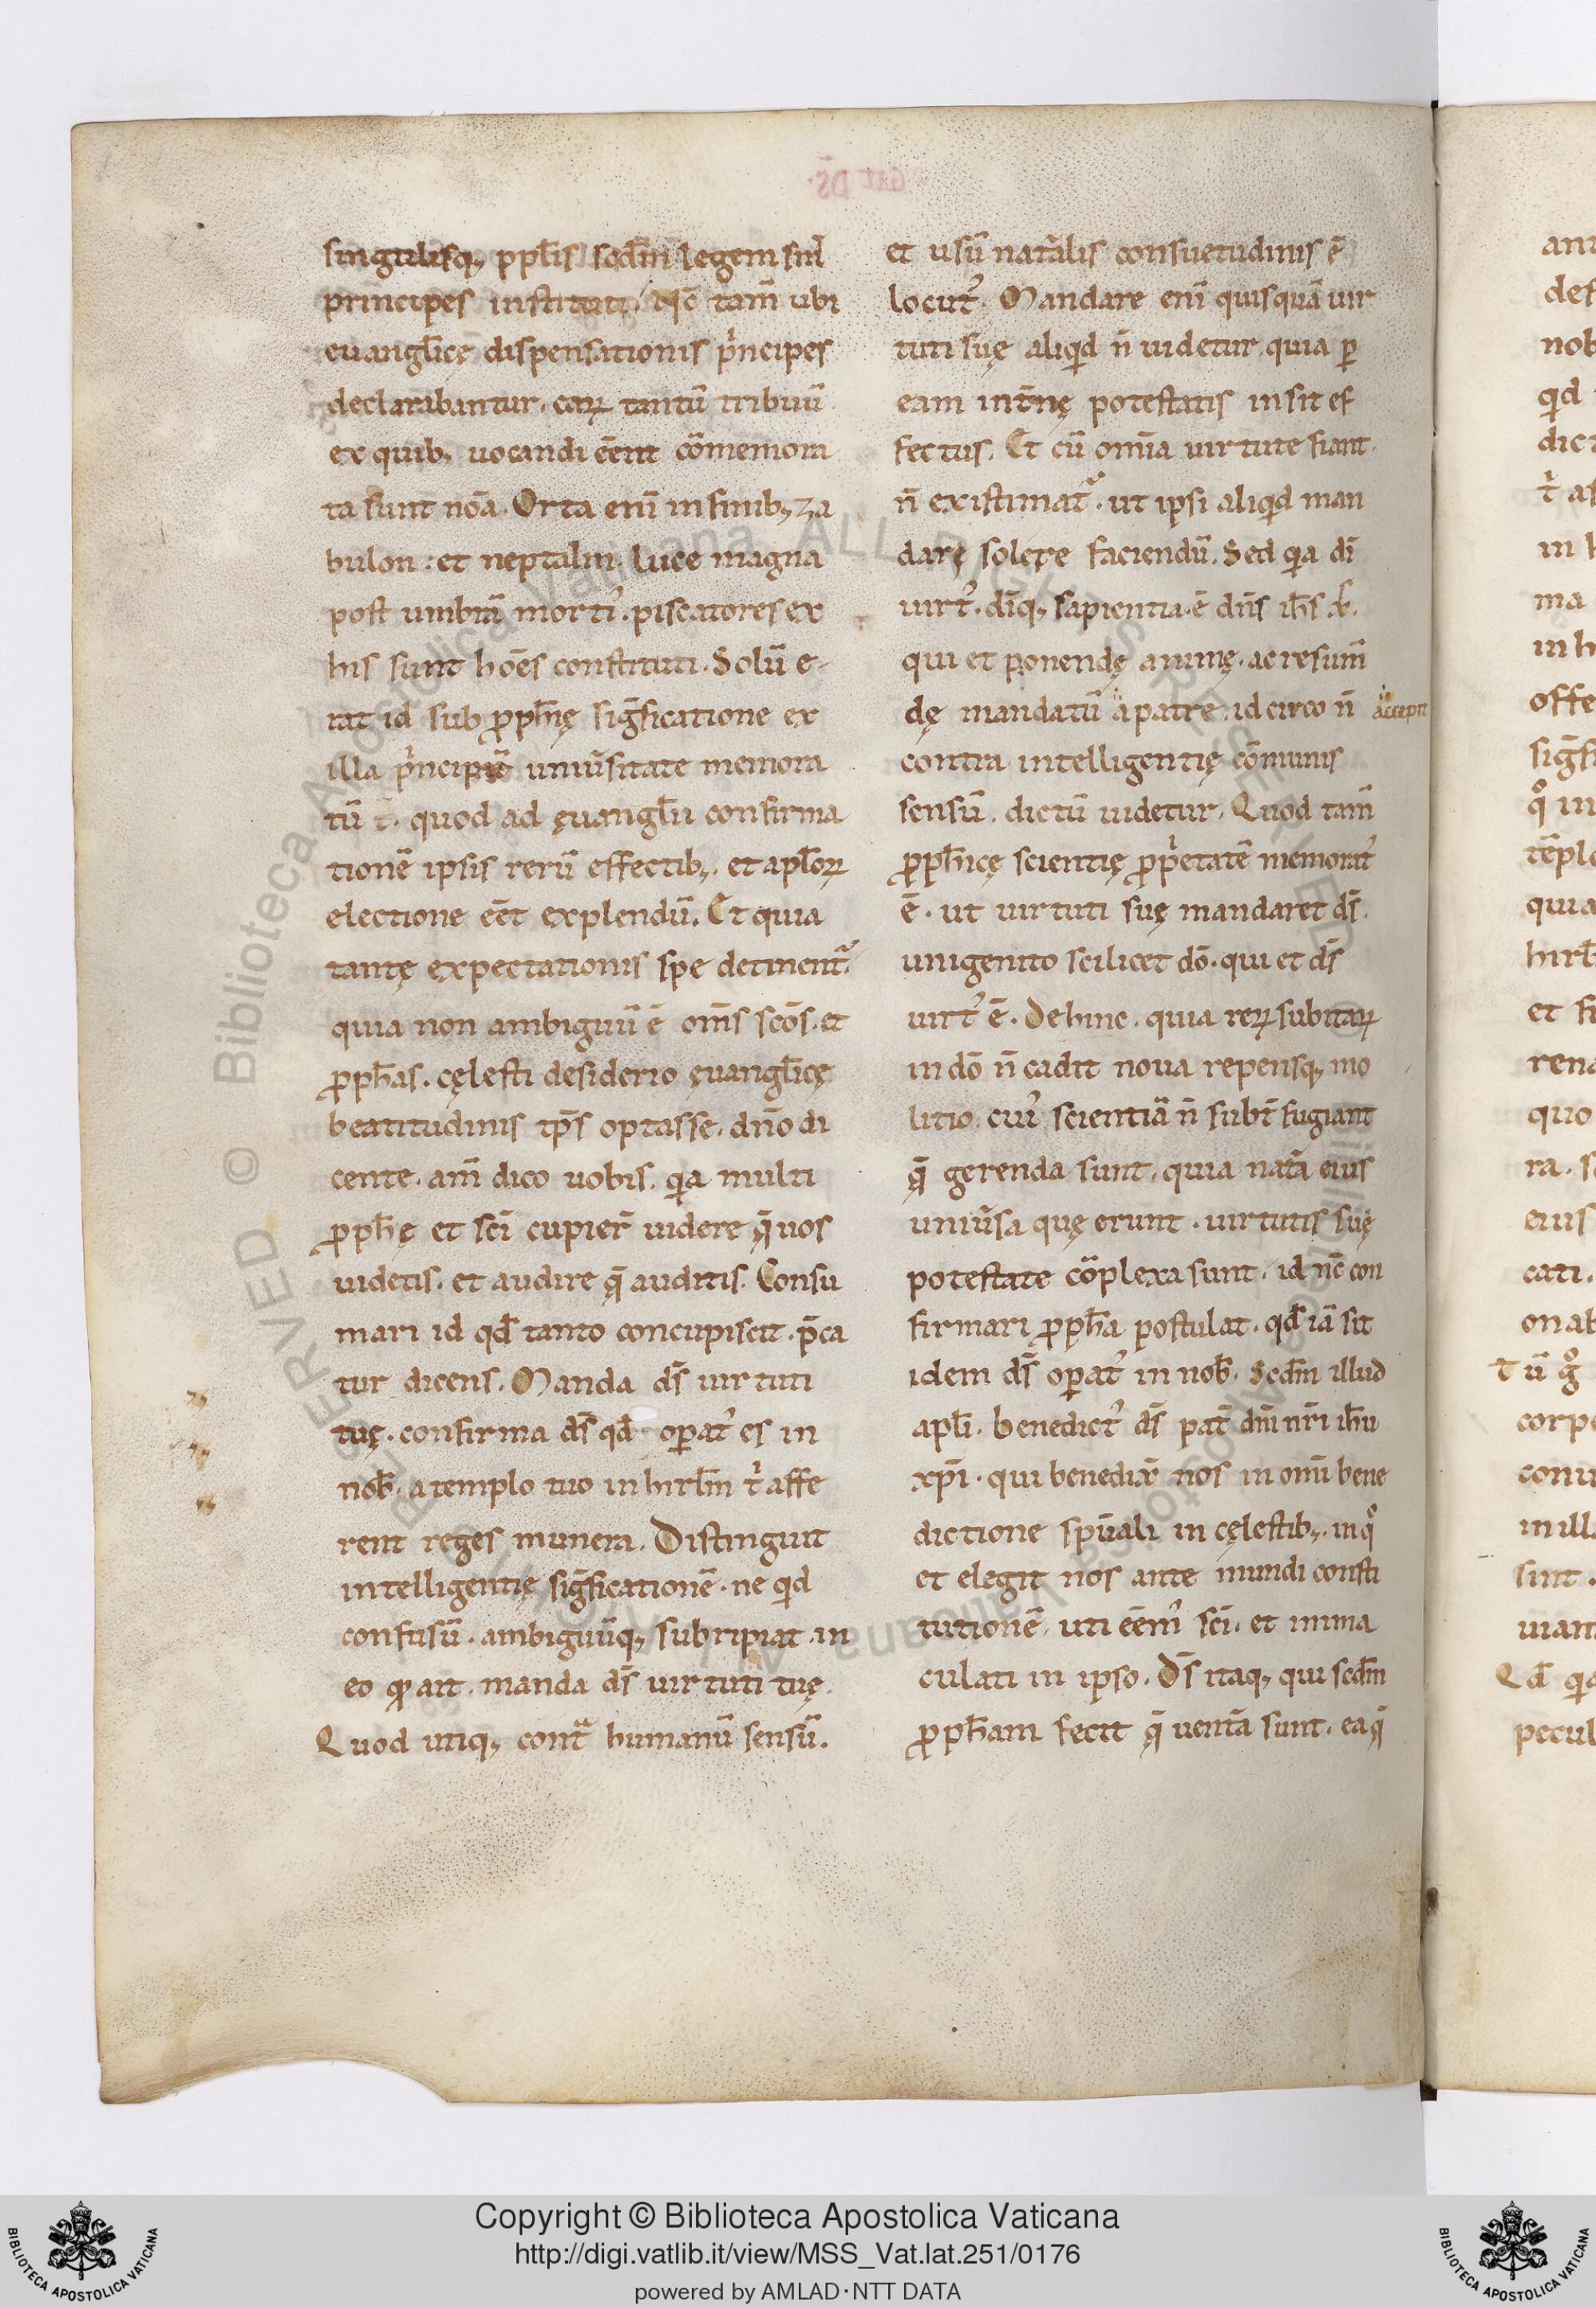 singulisq; ppl̄is scd̄m legem sint
principes instituti. Nc̄ tam̄ ubi
euangl̄icę dispensationis pͥncipes
declarabantur. eaꝝ tantū tribuū
ex quib; uocandi eēnt cōmemora
ta sunt noa̅. Orta enī in finib; za
bulon: et neptalim. luce magna
post umbrā mortꝰ. piscatores ex
his sunt hoēs constituti. Solū e-
rat id sub ꝓph̄ę sigficatione ex
illa pͥncipū uniūsitate memora
tū t̄. quod ad ęuangl̄ii confirma
tionē ipsis rerū effectib;. et apl̄oꝝ
electione eēt explendū. Et quia
tantę expectationis spe detinent᷑.
quia non ambiguū ē om̄s sco̅s. et
ꝓph̄as. cęlesti desiderio ęuangl̄icę
beatitudinis tp̄s optasse. dn̄o di
cente. am̄ dico uobis. qia multi
ꝓph̄ę et sc̄i cupier̄ uidere q̄ uos
uidetis. et audire q̄ auditis. Consu
mari id qd̄ tanto concupiscit. p̄ca
tur dicens. Manda ds̄ uirtuti
tuę. confirma ds̄ qd̄ opatꝰ es in
nob̄. a templo tuo in hirl̄m tͥ affe
rent reges munera. Distinguit
intelligentię sigficationē. ne qid
confusū. ambiguūq; subripiat. in
eo qꝫ ait. manda ds̄ uirtuti tuę.
Quod utiq; contᷓ humanū sensū.
et usū natᷓlis consuetudinis ē
locutꝰ. Mandare enī quisquā uir
tuti suę aliqid n̄ uidetur. quia ꝑ
eam int̄nę potestatis insit ef
fectus. Et cū omīa uirtute fiant.
n̄ existimat᷑. ut ipsi aliqid man
darę solere faciendū. Sed qia dī
uirtꝰ. dīq; sapientia. ē dn̄s ih̄s x̄.
qui et ponendę animę. ac resum̄
dę mandatū a patre. id circo n̄
accepit
contra intelligentię cōmunis
sensū. dictū uidetur. Quod tam̄
ꝓph̄icę scientię ꝓpͥetatē memoratꝰ
ē. ut uirtuti suę mandaret ds̄.
unigenito scilicet dō. qui et ds̄
uirtꝰ ē. Dehinc. quia reꝝ subitaꝝ
in dō n̄ cadit noua repensq; mo
litio. cuiꝰ scientiā n̄ subt̄fugiant
q̄ gerenda sunt. quia natᷓ eius
uniūsa quę erunt. uirtutis suę
potestate cōplexa sunt. id nc̄ con
firmari ꝓph̄a postulat. qd̄ iā sit
idem ds̄ opatꝰ in nob̄. Scd̄m illud
apl̄i. benedictꝰ ds̄ pat̄ dn̄i nr̄i ih̄u
xp̄i. qui benedix̄ nos in om̄i bene
dictione spūali in cęlestib;. in qͦ
et elegit nos ante mundi consti
tutionē. uti eēmꝰ sc̄i. et imma
culati in ipso. Ds̄ itaq; qui scd̄m
ꝓph̄am fecit q̄ uentᷓ sunt. ea q̄
Copyright © Biblioteca Apostolica Vaticana
http://digi.vatlib.it/view/MSS_Vat.lat.251/0176
powered by AMLAD · NTT DATA
BIBLIOTECA APOSTOLICA VATICANA
BIBLIOTECA APOSTOLICA VATICANA